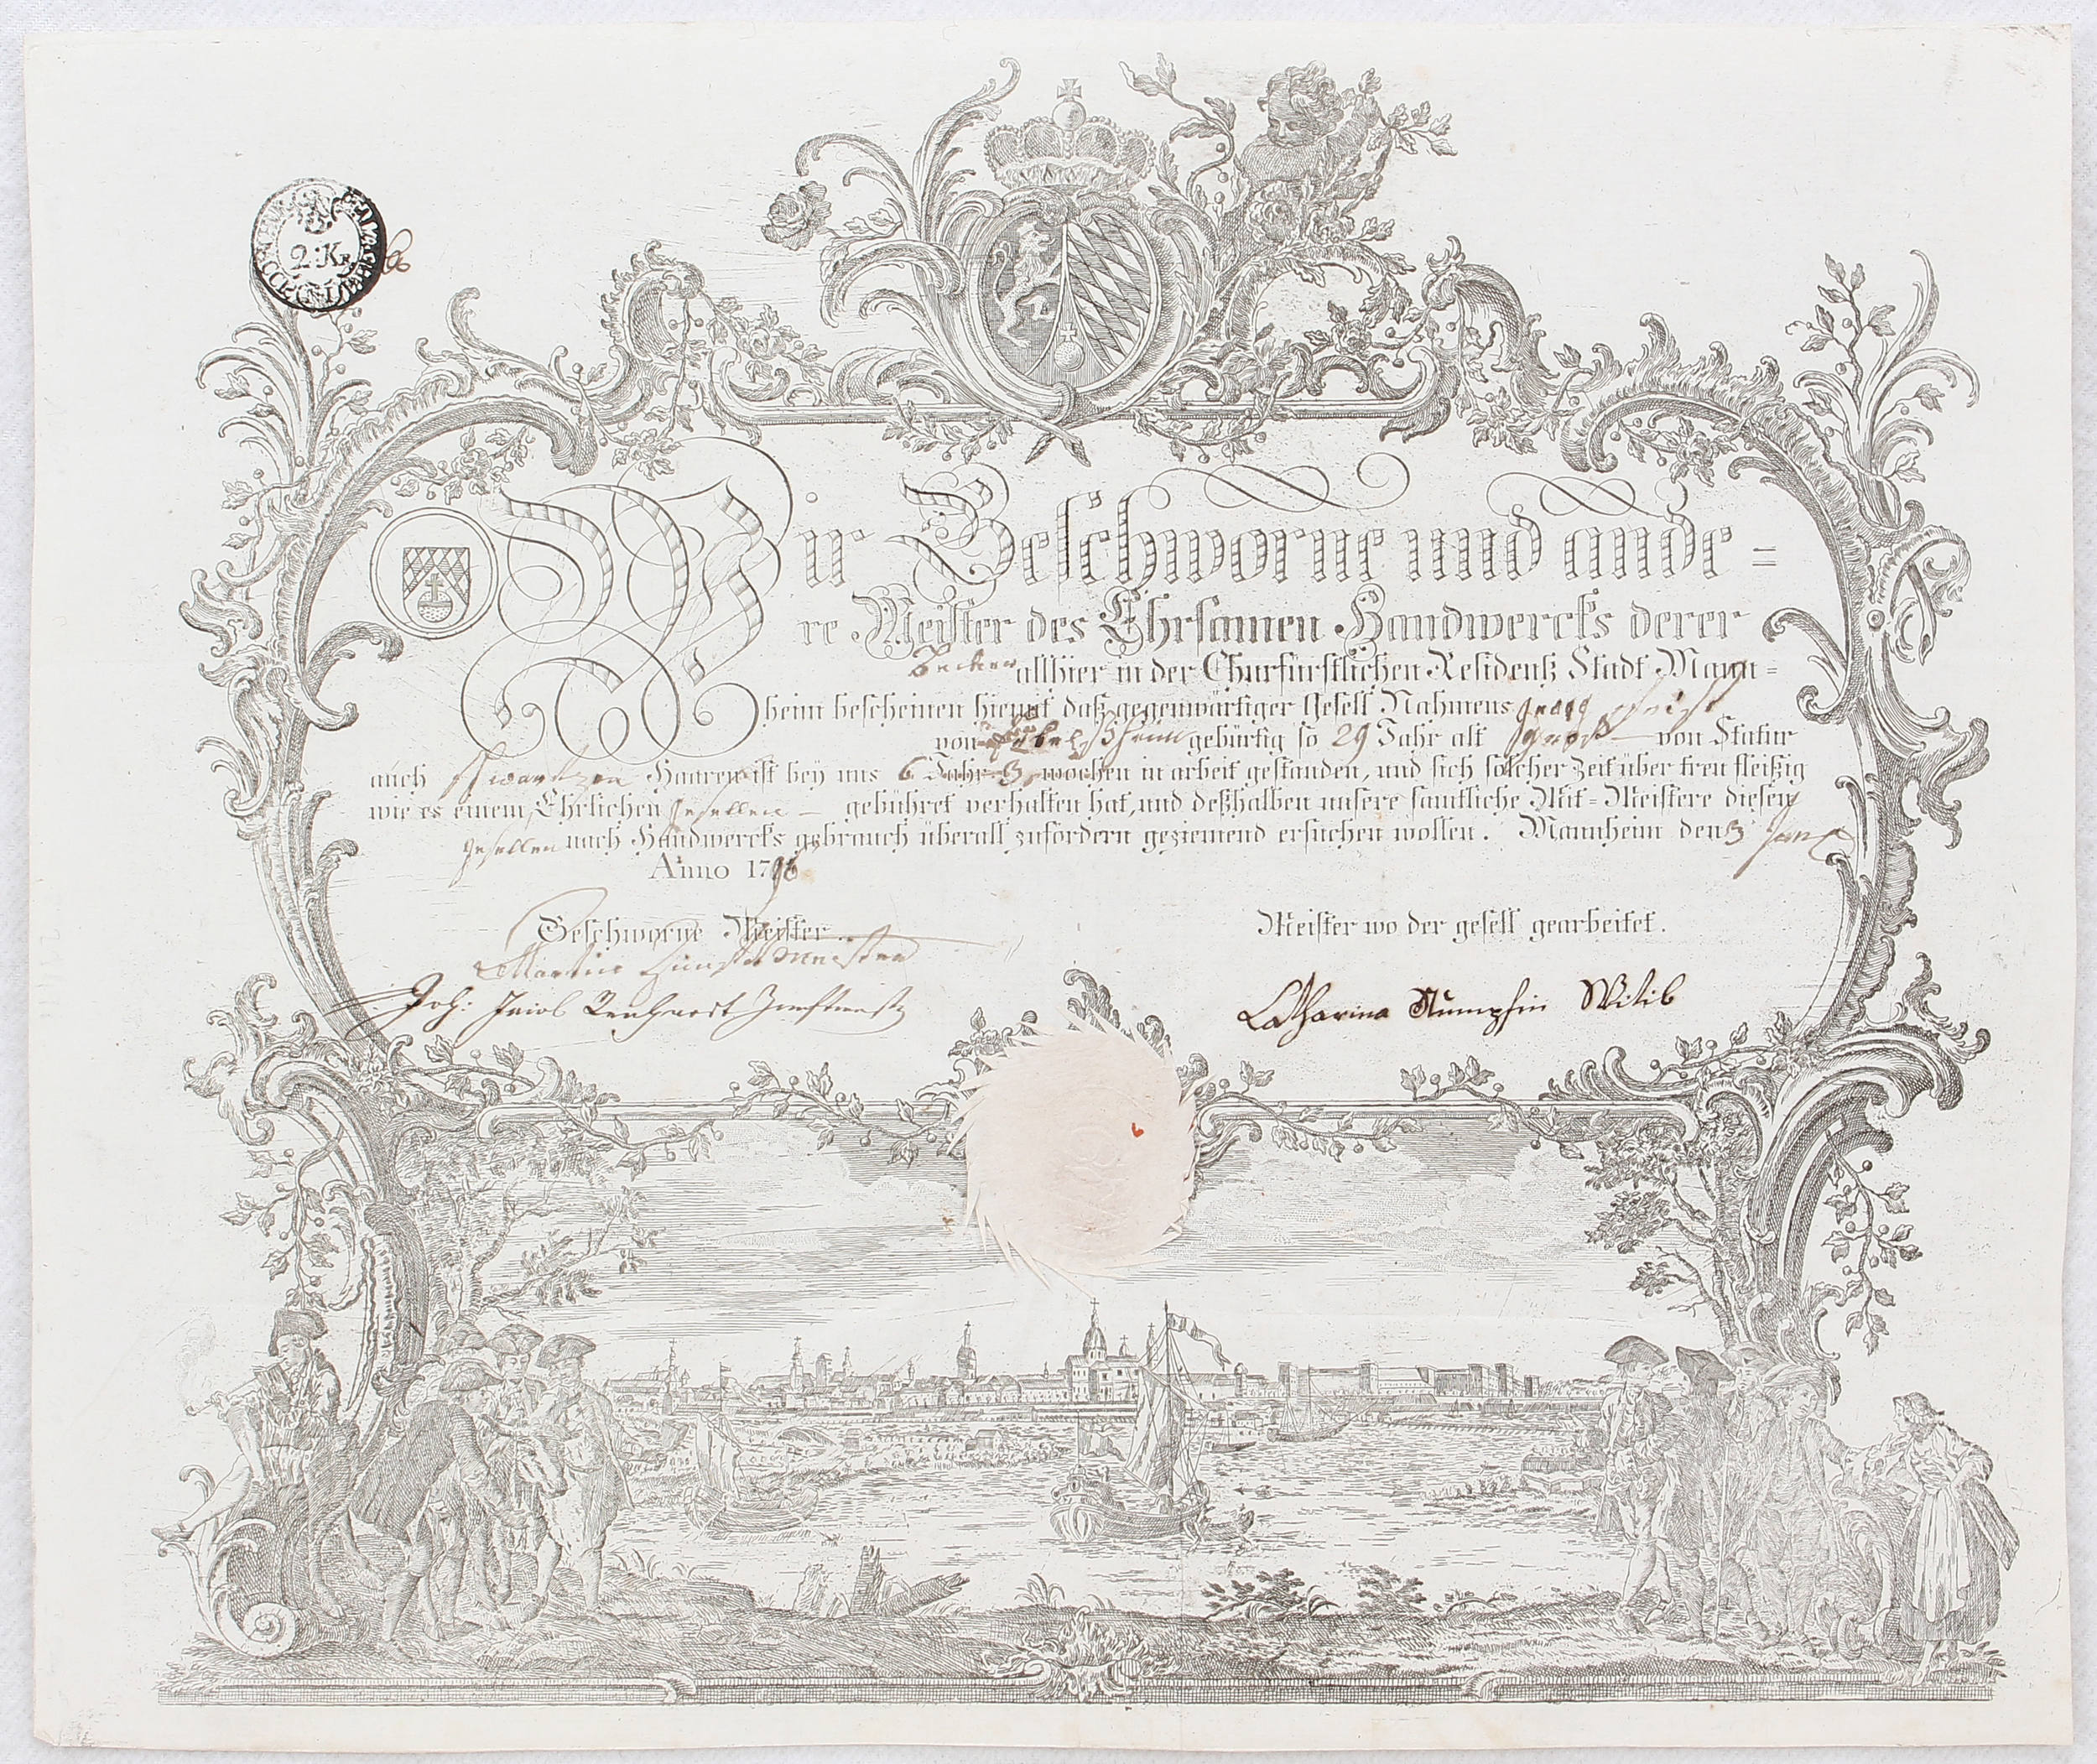 2:Kr
Wir Geschworne und ande=
re Meister des Ehrsamen Handwercks derer
Becker allhier in der Churfürstlichen Residentz Stadt Mann=
heim bescheinen hiemit daß gegenwärtiger Gesell Nahmens Georg
von gebürtig so 29 Jahr alt groß von Statur
auch schwartzen Haaren ist bey uns 6 Jahr 3 wochen in arbeit gestanden, und sich solcher Zeit über treu fleißig
wie es einem Ehrlichen gesellen gebühret verhalten hat, und deßhalben unsere samtliche Mit=Meistere diesen
gesellen nach Handwercks gebrauch überall zufördern geziemend ersuchen wollen. Mannheim den 3
Anno 1796
Geschworne Meister
Meister wo der gesell gearbeitet.
Martin
Joh: Jacob
Catharina Rumpfin Witib